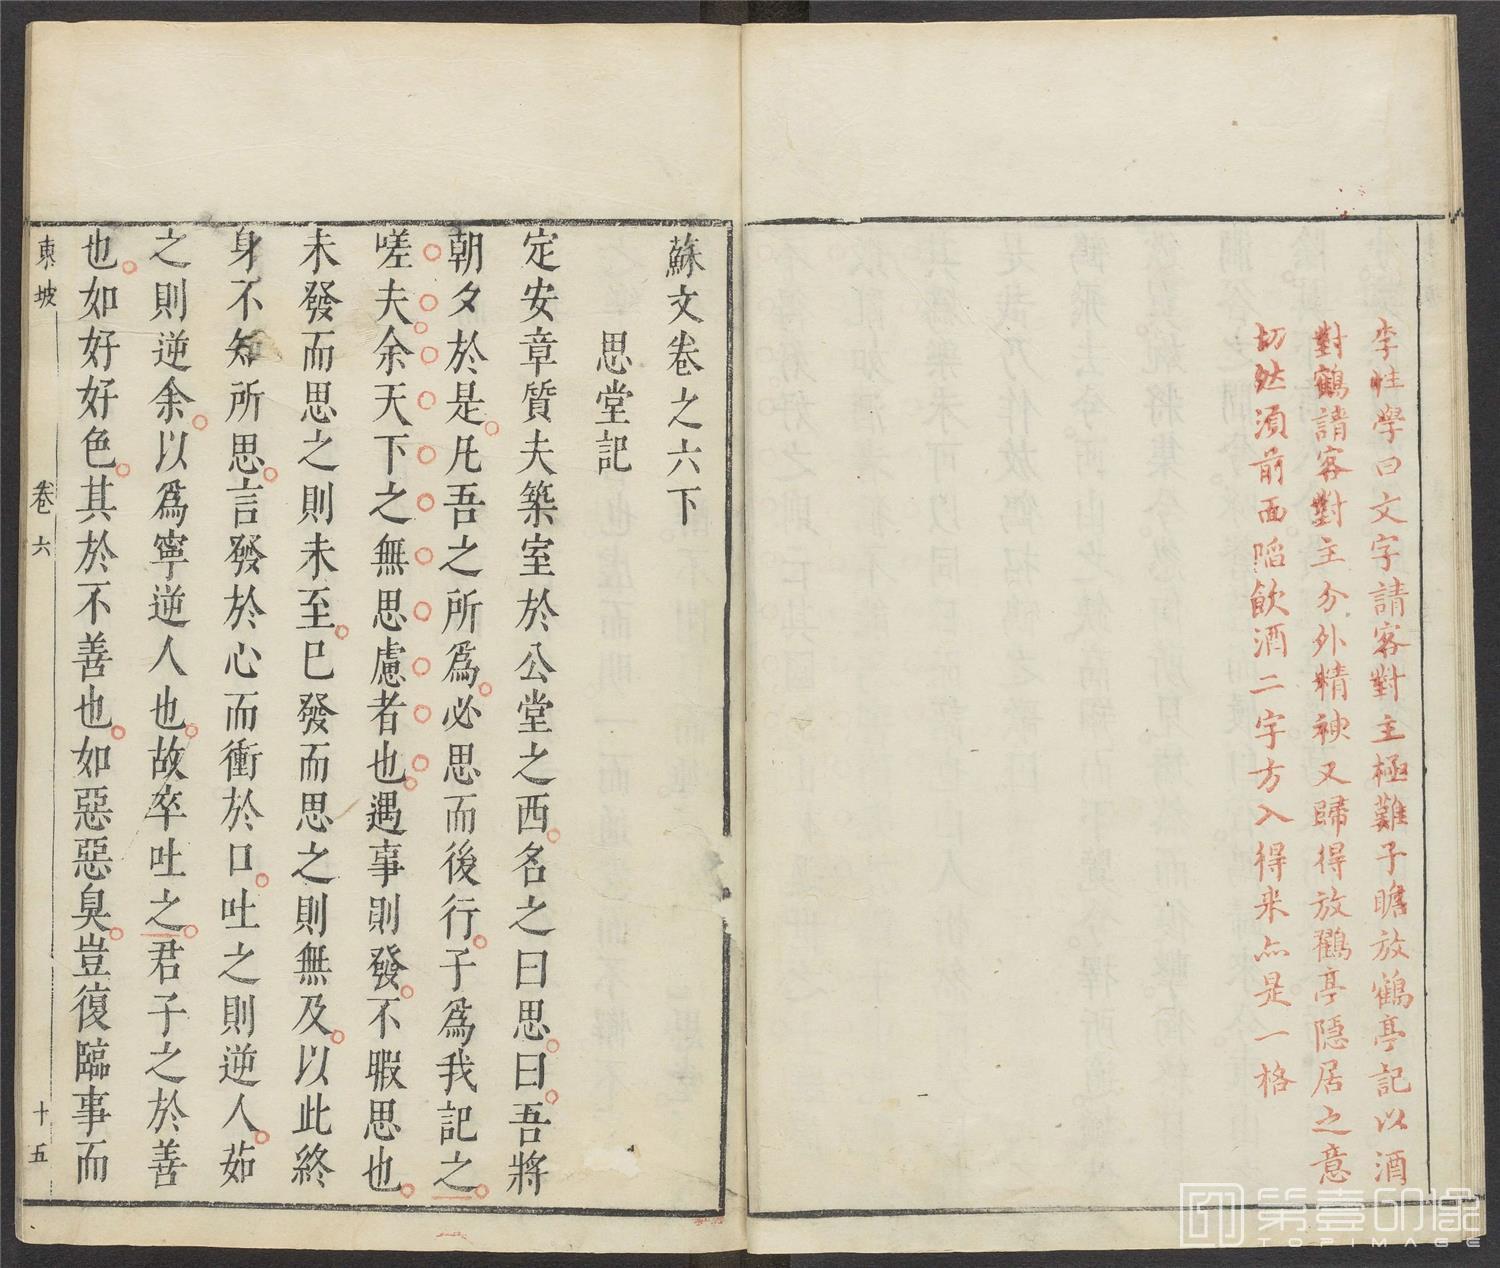 李性學曰文字請客對主極難子瞻放鶴亭記以酒
對鶴請客對主分外精神又歸得放鸛亭隱居之意
切然須前面陷飲酒二字方入得来亦是一格
蘇文卷之六下
思堂記
定安章質夫築室於公堂之西名之曰思曰吾將
朝夕於是凡吾之所爲必思而後行子爲我記之
嗟夫余天下之無思慮者也遇事則發不暇思也
未發而思之則未至巳發而思之則無及以此終
身不知所思言發於心而衝於口吐之則逆人茹
之則逆余以爲寧逆人也故卒吐之君子之於善
也如好好色其於不善也如惡惡臭豈復臨事而
東坡 卷六 十五
第壹印像
TOPIMAGE